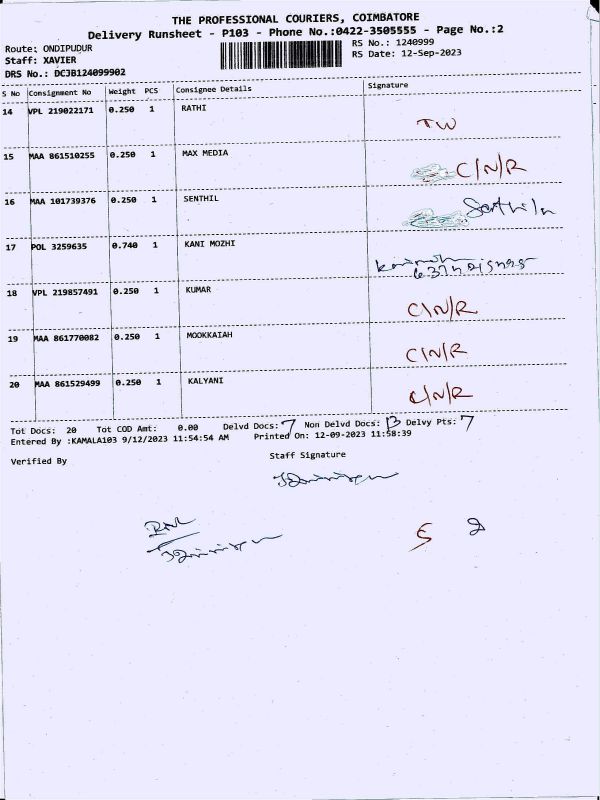 THE PROFESSIONAL COURIERS, COIMBATORE
Delivery Runsheet - P103 - Phone No.:0422-3505555 - Page No.:2
Route: ONDIPUDUR RS No.: 1240999
Staff: XAVIER RS Date: 12-Sep-2023
DRS No.: DCJB124099902
S No Consignment No Weight PCS Consignee Details Signature
14 VPL 219022171 0.250 1 RATHI
TW
15 MAA 861510255 0.250 1 MAX MEDIA
C/N/R
16 MAA 101739376 0.250 1 SENTHIL
Senthil
17 POL 3259635 0.740 1 KANI MOZHI
18 VPL 219857491 0.250 1 KUMAR
C/N/R
19 MAA 861770082 0.250 1 MOOKKAIAH
C/N/R
20 MAA 861529499 0.250 1 KALYANI
C/N/R
Tot Docs: 20 Tot COD Amt: 0.00 Delvd Docs: 7 Non Delvd Docs: 13 Delvy Pts: 7
Entered By :KAMALA103 9/12/2023 11:54:54 AM Printed On: 12-09-2023 11:58:39
Verified By Staff Signature